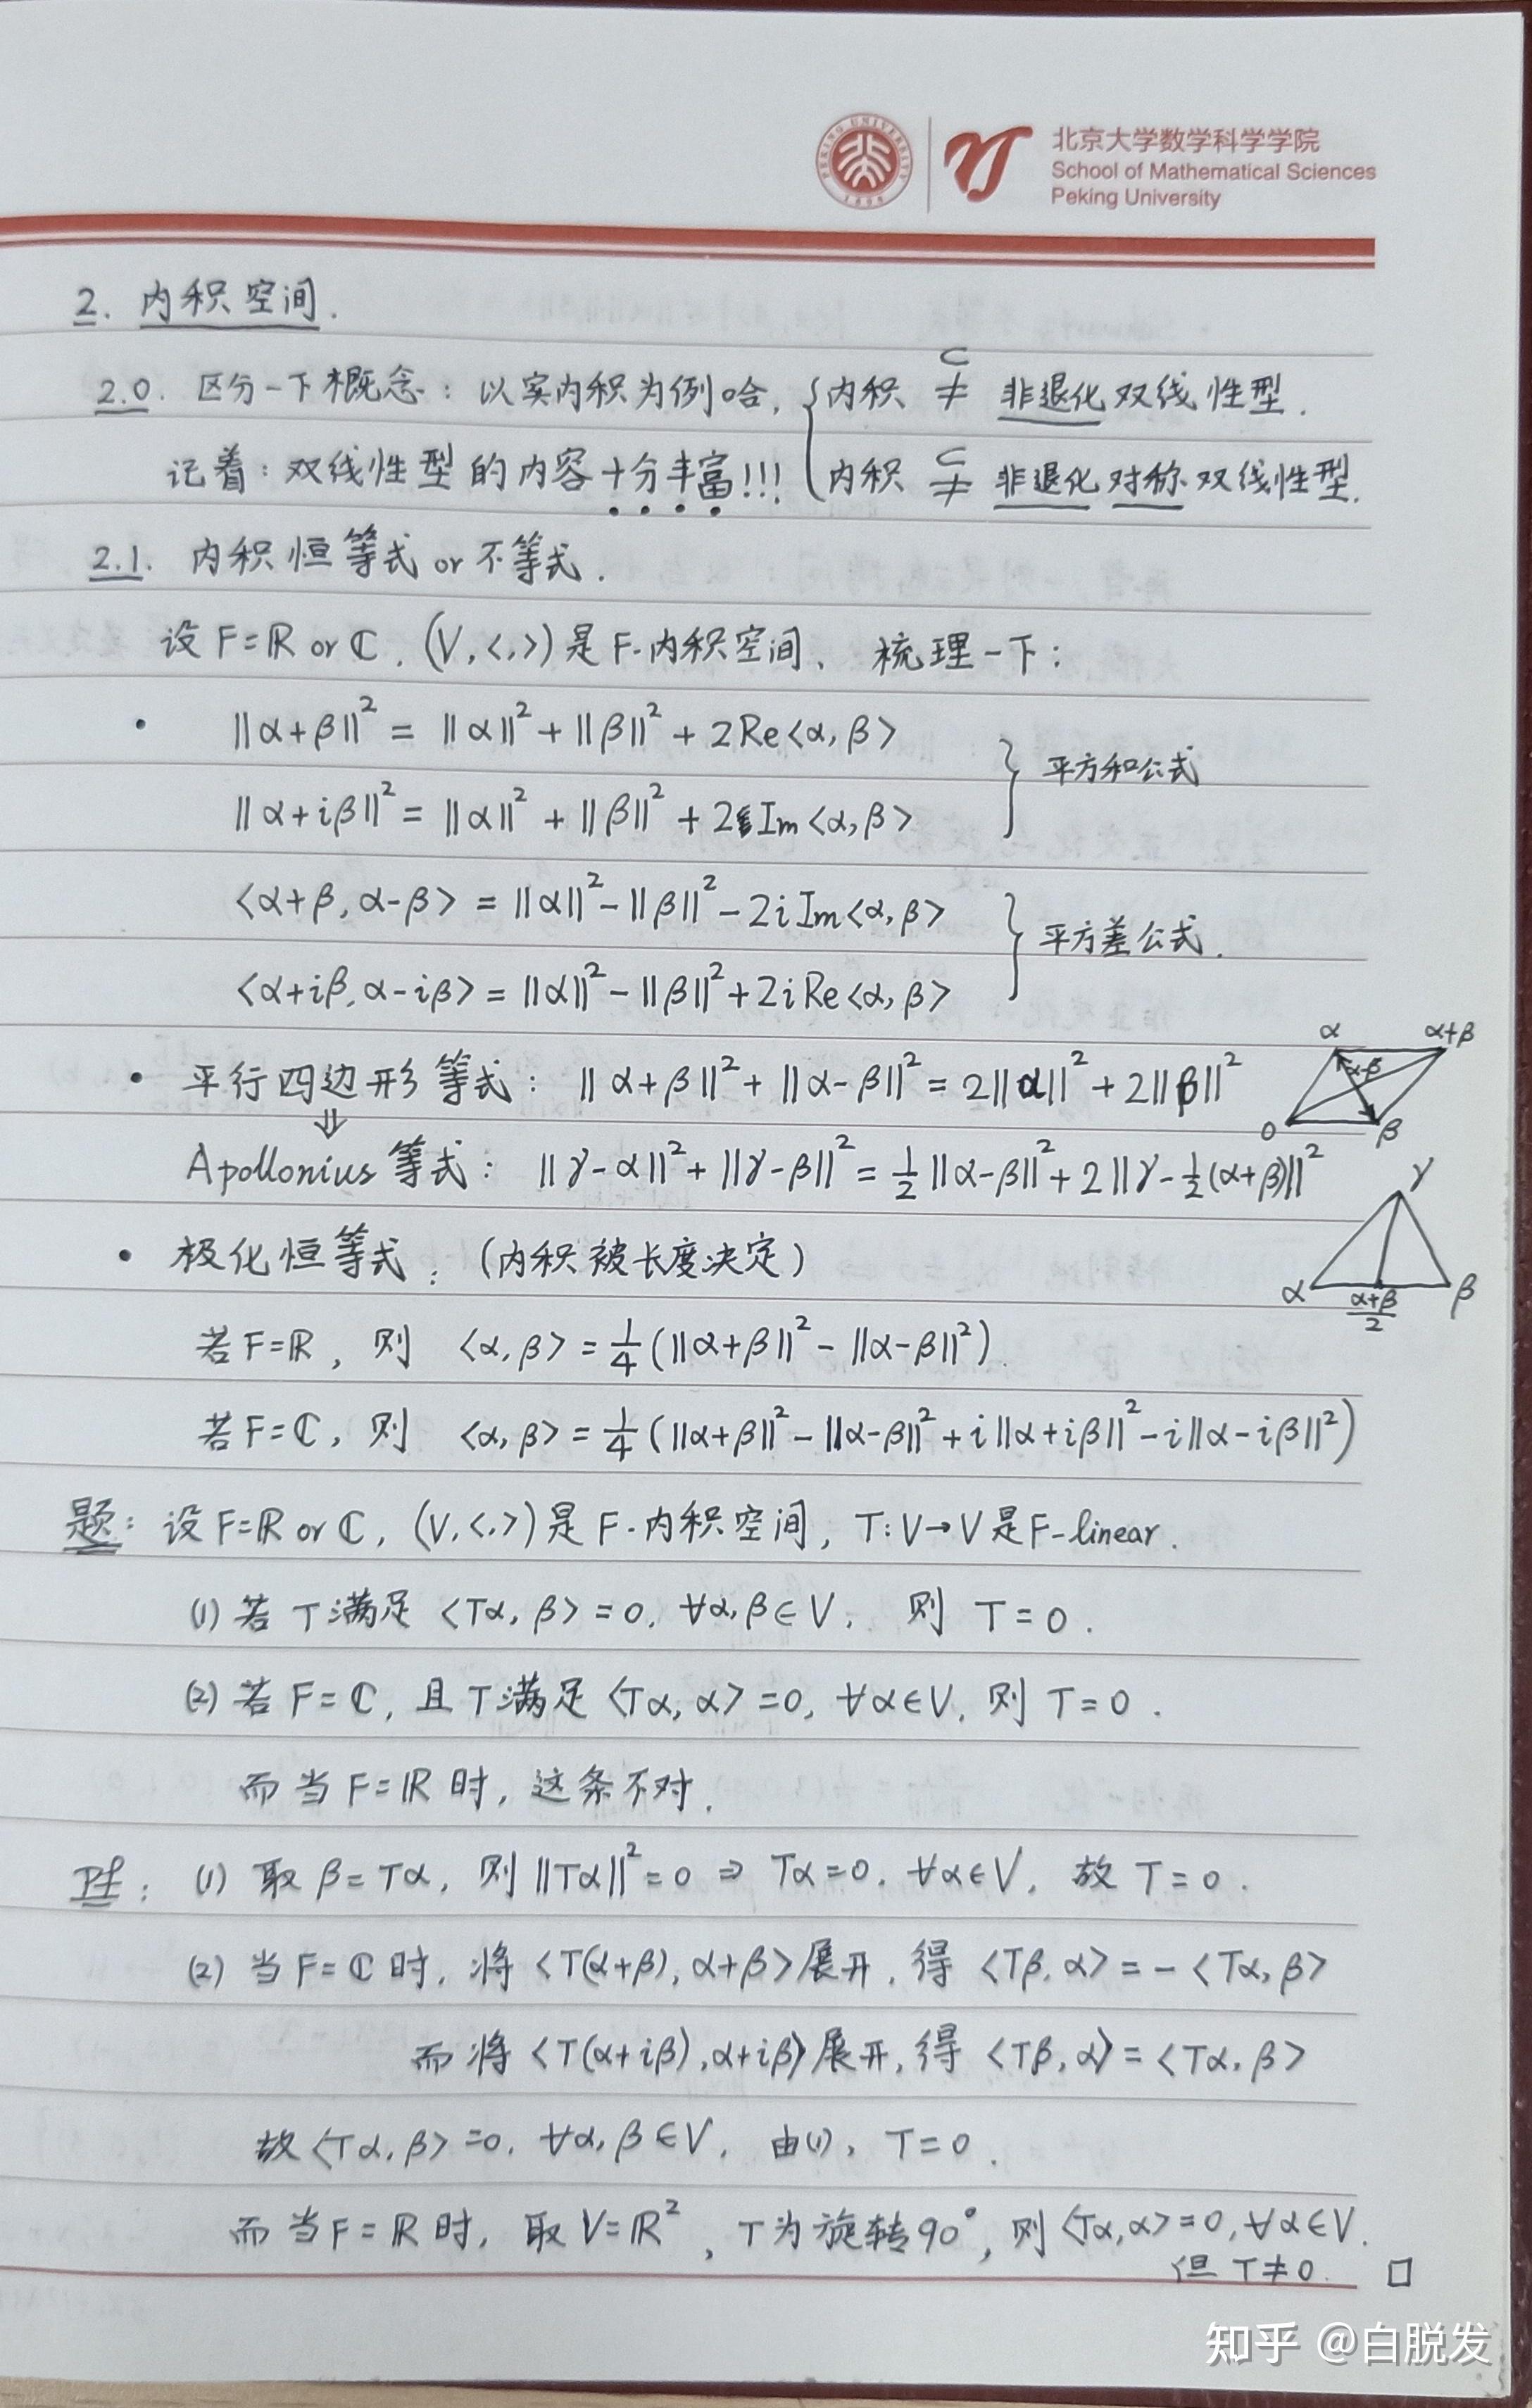 北京大学数学科学学院
School of Mathematical Sciences
Peking University
2. 内积空间.
2.0. 区分一下概念：以实内积为例哈, { 内积 ⊊ 非退化双线性型.
记着：双线性型的内容十分丰富!!! 内积 ⊊ 非退化对称双线性型.
2.1. 内积恒等式 or 不等式.
设 F=ℝ or ℂ, (V,<,>)是 F-内积空间、梳理一下：
• ||α+β||² = ||α||² + ||β||² + 2Re<α,β>
||α+iβ||² = ||α||² + ||β||² + 2Im<α,β>
} 平方和公式
<α+β, α-β> = ||α||² - ||β||² - 2i Im<α,β>
<α+iβ, α-iβ> = ||α||² - ||β||² + 2i Re<α,β>
} 平方差公式.
• 平行四边形等式：||α+β||² + ||α-β||² = 2||α||² + 2||β||²
α α+β
α-β
0 β
⇓
Apollonius等式：||γ-α||² + ||γ-β||² = 1/2 ||α-β||² + 2||γ - 1/2(α+β)||²
γ
α (α+β)/2 β
• 极化恒等式：(内积被长度决定)
若 F=ℝ, 则 <α,β> = 1/4 (||α+β||² - ||α-β||²).
若 F=ℂ, 则 <α,β> = 1/4 (||α+β||² - ||α-β||² + i||α+iβ||² - i||α-iβ||²)
题：设 F=ℝ or ℂ, (V,<,>)是 F-内积空间, T: V→V 是 F-linear.
(1) 若 T 满足 <Tα, β> = 0, ∀α,β∈V, 则 T=0.
(2) 若 F=ℂ, 且 T 满足 <Tα, α> = 0, ∀α∈V, 则 T=0.
而当 F=ℝ 时, 这条不对.
Pf: (1) 取 β=Tα, 则 ||Tα||²=0 ⇒ Tα=0, ∀α∈V, 故 T=0.
(2) 当 F=ℂ 时, 将 <T(α+β), α+β> 展开, 得 <Tβ, α> = - <Tα, β>
而将 <T(α+iβ), α+iβ> 展开, 得 <Tβ, α> = <Tα, β>
故 <Tα, β> = 0, ∀α, β∈V, 由(1), T=0.
而当 F=ℝ 时, 取 V=ℝ², T 为旋转90°, 则 <Tα,α> = 0, ∀α∈V.
但 T≠0. □
知乎 @白脱发